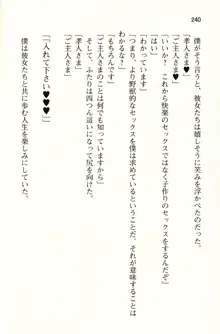 240
僕がそう言うと、彼女たちは嬉しそうに笑みを浮かべたのだった。
「孝人さま♥」
「ご主人さま♥」
「これから快楽のセックスではなく子作りのセックスをするんだぞ」
「はい」
「わかっています」
「つまり、より野獣的なセックスを僕は求めているということだ。それが意味することは
わかるな?」
「もちろんです」
「ご主人さまのことは何でも知っていますから」
そして、ふたりは四つん這いになって尻を向けた。
「「入れて下さい♥♥♥」」
僕は彼女たちと共に歩む人生を楽しむのだった。